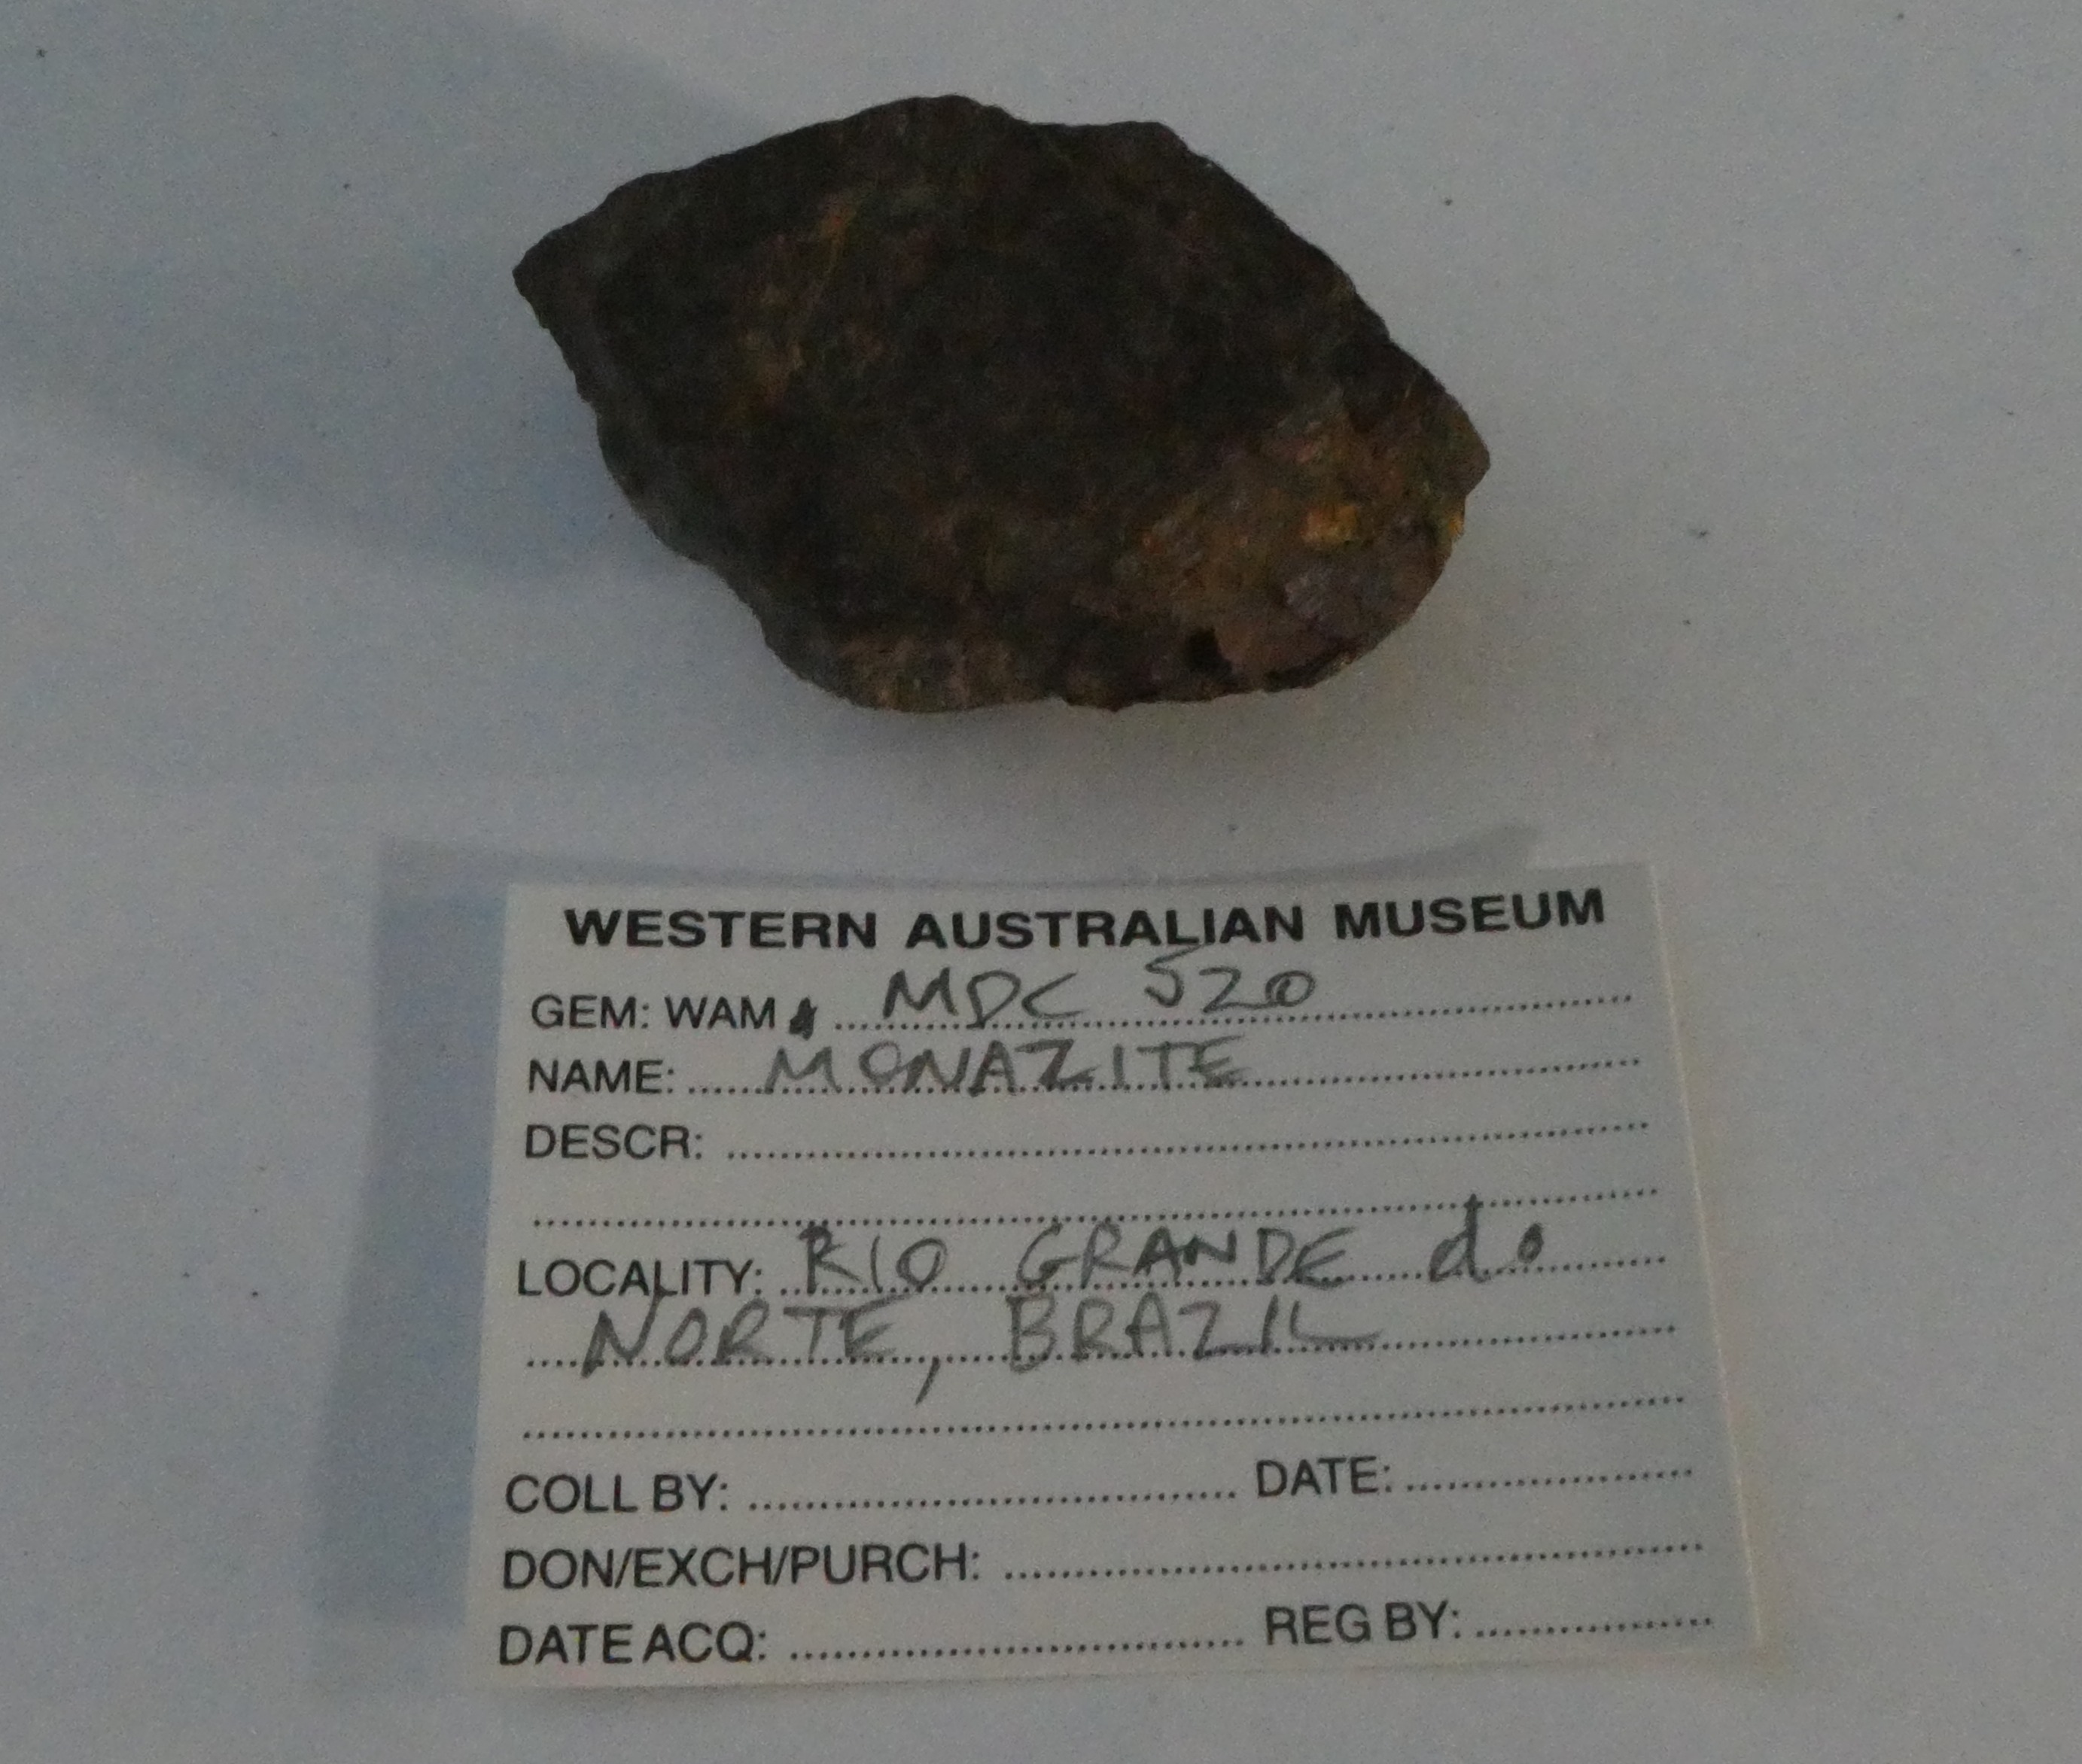 WESTERN AUSTRALIAN MUSEUM
GEM: WAM MDC 520
NAME: MONAZITE
DESCR:
LOCALITY: RIO GRANDE do
NORTE, BRAZIL
COLL BY: DATE:
DON/EXCH/PURCH:
DATE ACQ: REG BY: